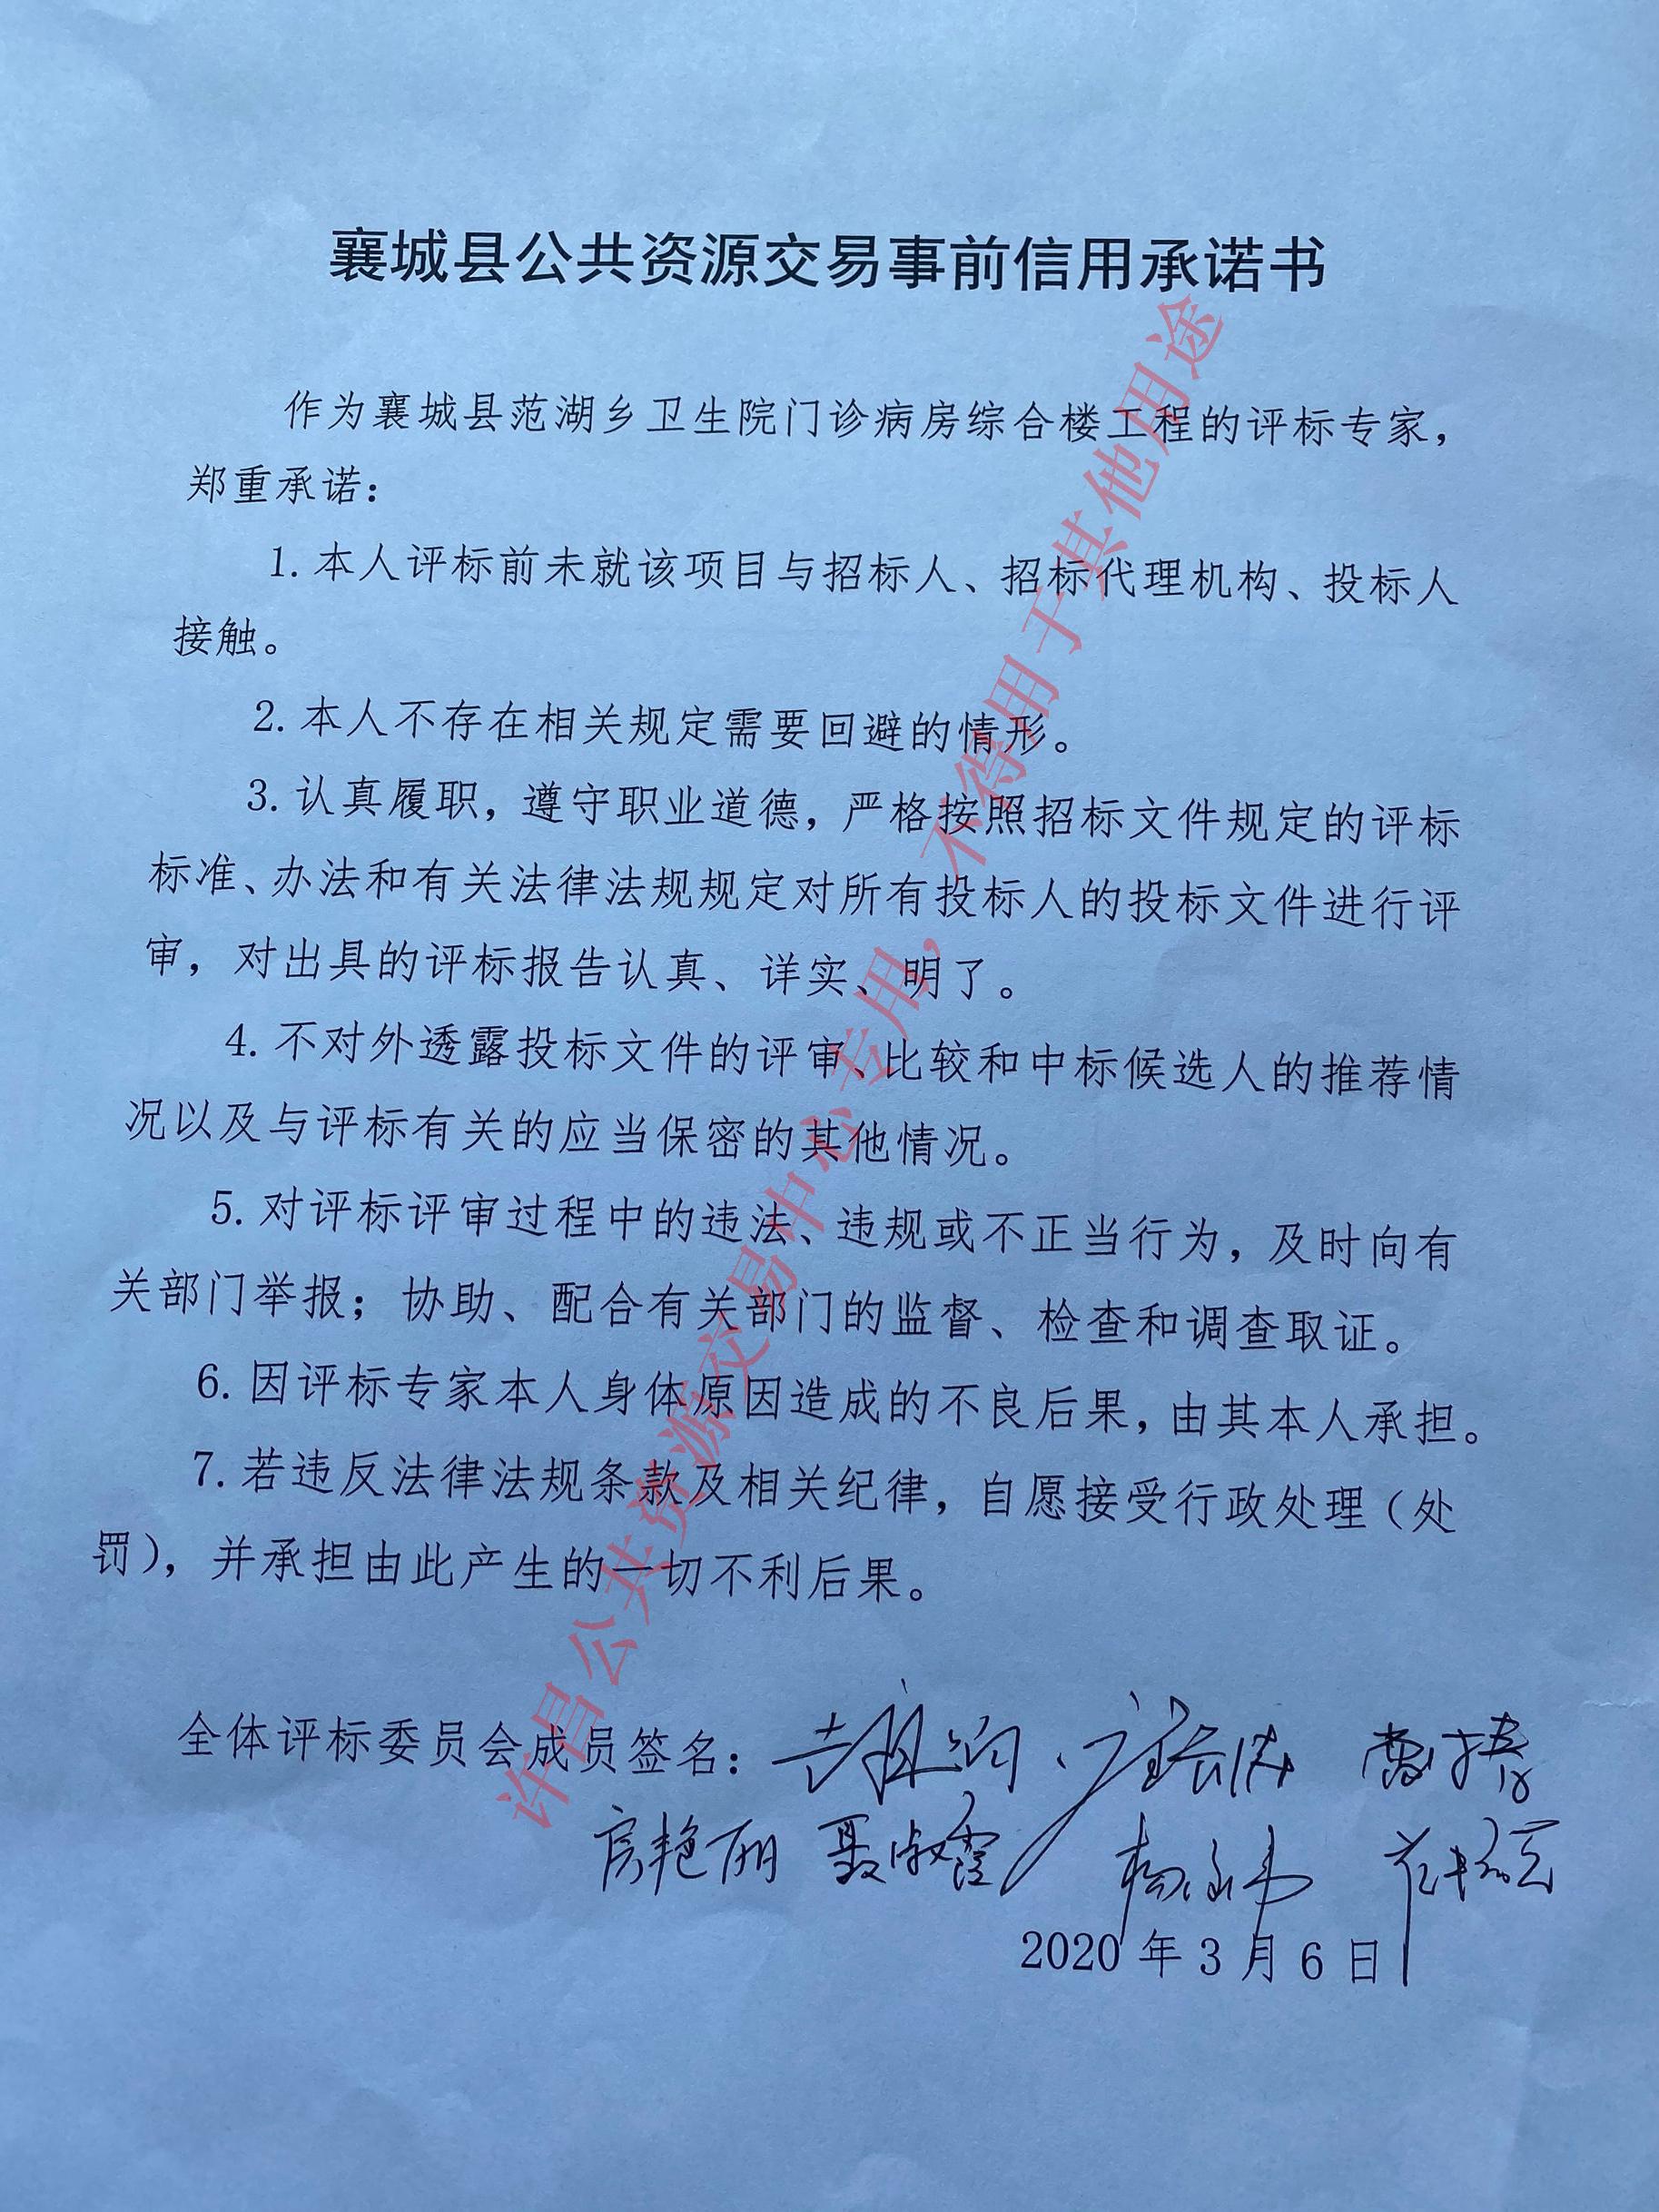 襄城县公共资源交易事前信用承诺书
作为襄城县范湖乡卫生院门诊病房综合楼工程的评标专家，
郑重承诺：
1.本人评标前未就该项目与招标人、招标代理机构、投标人
接触。
2.本人不存在相关规定需要回避的情形。
3.认真履职，遵守职业道德，严格按照招标文件规定的评标
标准、办法和有关法律法规规定对所有投标人的投标文件进行评
审，对出具的评标报告认真、详实、明了。
4.不对外透露投标文件的评审、比较和中标候选人的推荐情
况以及与评标有关的应当保密的其他情况。
5.对评标评审过程中的违法、违规或不正当行为，及时向有
关部门举报；协助、配合有关部门的监督、检查和调查取证。
6.因评标专家本人身体原因造成的不良后果，由其本人承担。
7.若违反法律法规条款及相关纪律，自愿接受行政处理（处
罚），并承担由此产生的一切不利后果。
全体评标委员会成员签名：
房艳丽 聂淑霞
2020年3月6日
许昌公共资源交易中心专用，不得用于其他用途